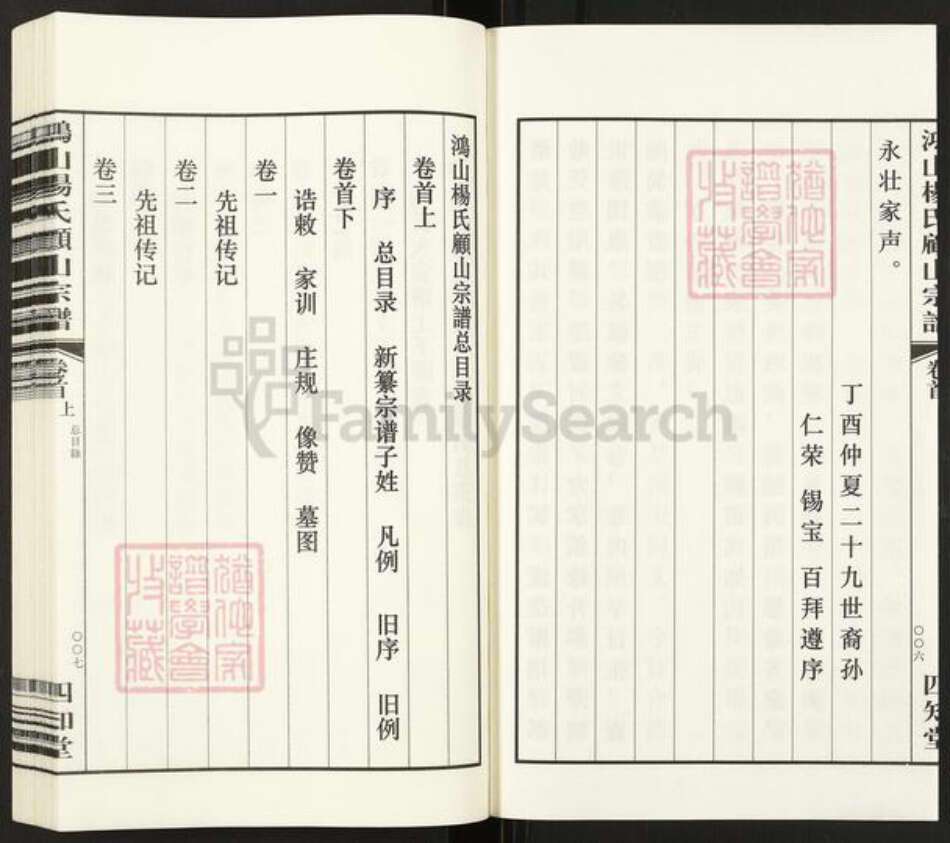 鸿山楊氏顧山宗譜
卷首
〇〇六
四知堂
永壮家声。
丁酉仲夏二十九世裔孙
仁荣 锡宝 百拜遵序
鴻山楊氏顧山宗譜总目录
卷首上
序 总目录 新纂宗谱子姓 凡例 旧序 旧例
卷首下
诰敕 家训 庄规 像赞 墓图
卷一
先祖传记
卷二
先祖传记
卷三
鴻山楊氏顧山宗譜
卷首上
总目錄
〇〇七
四知堂
FamilySearch